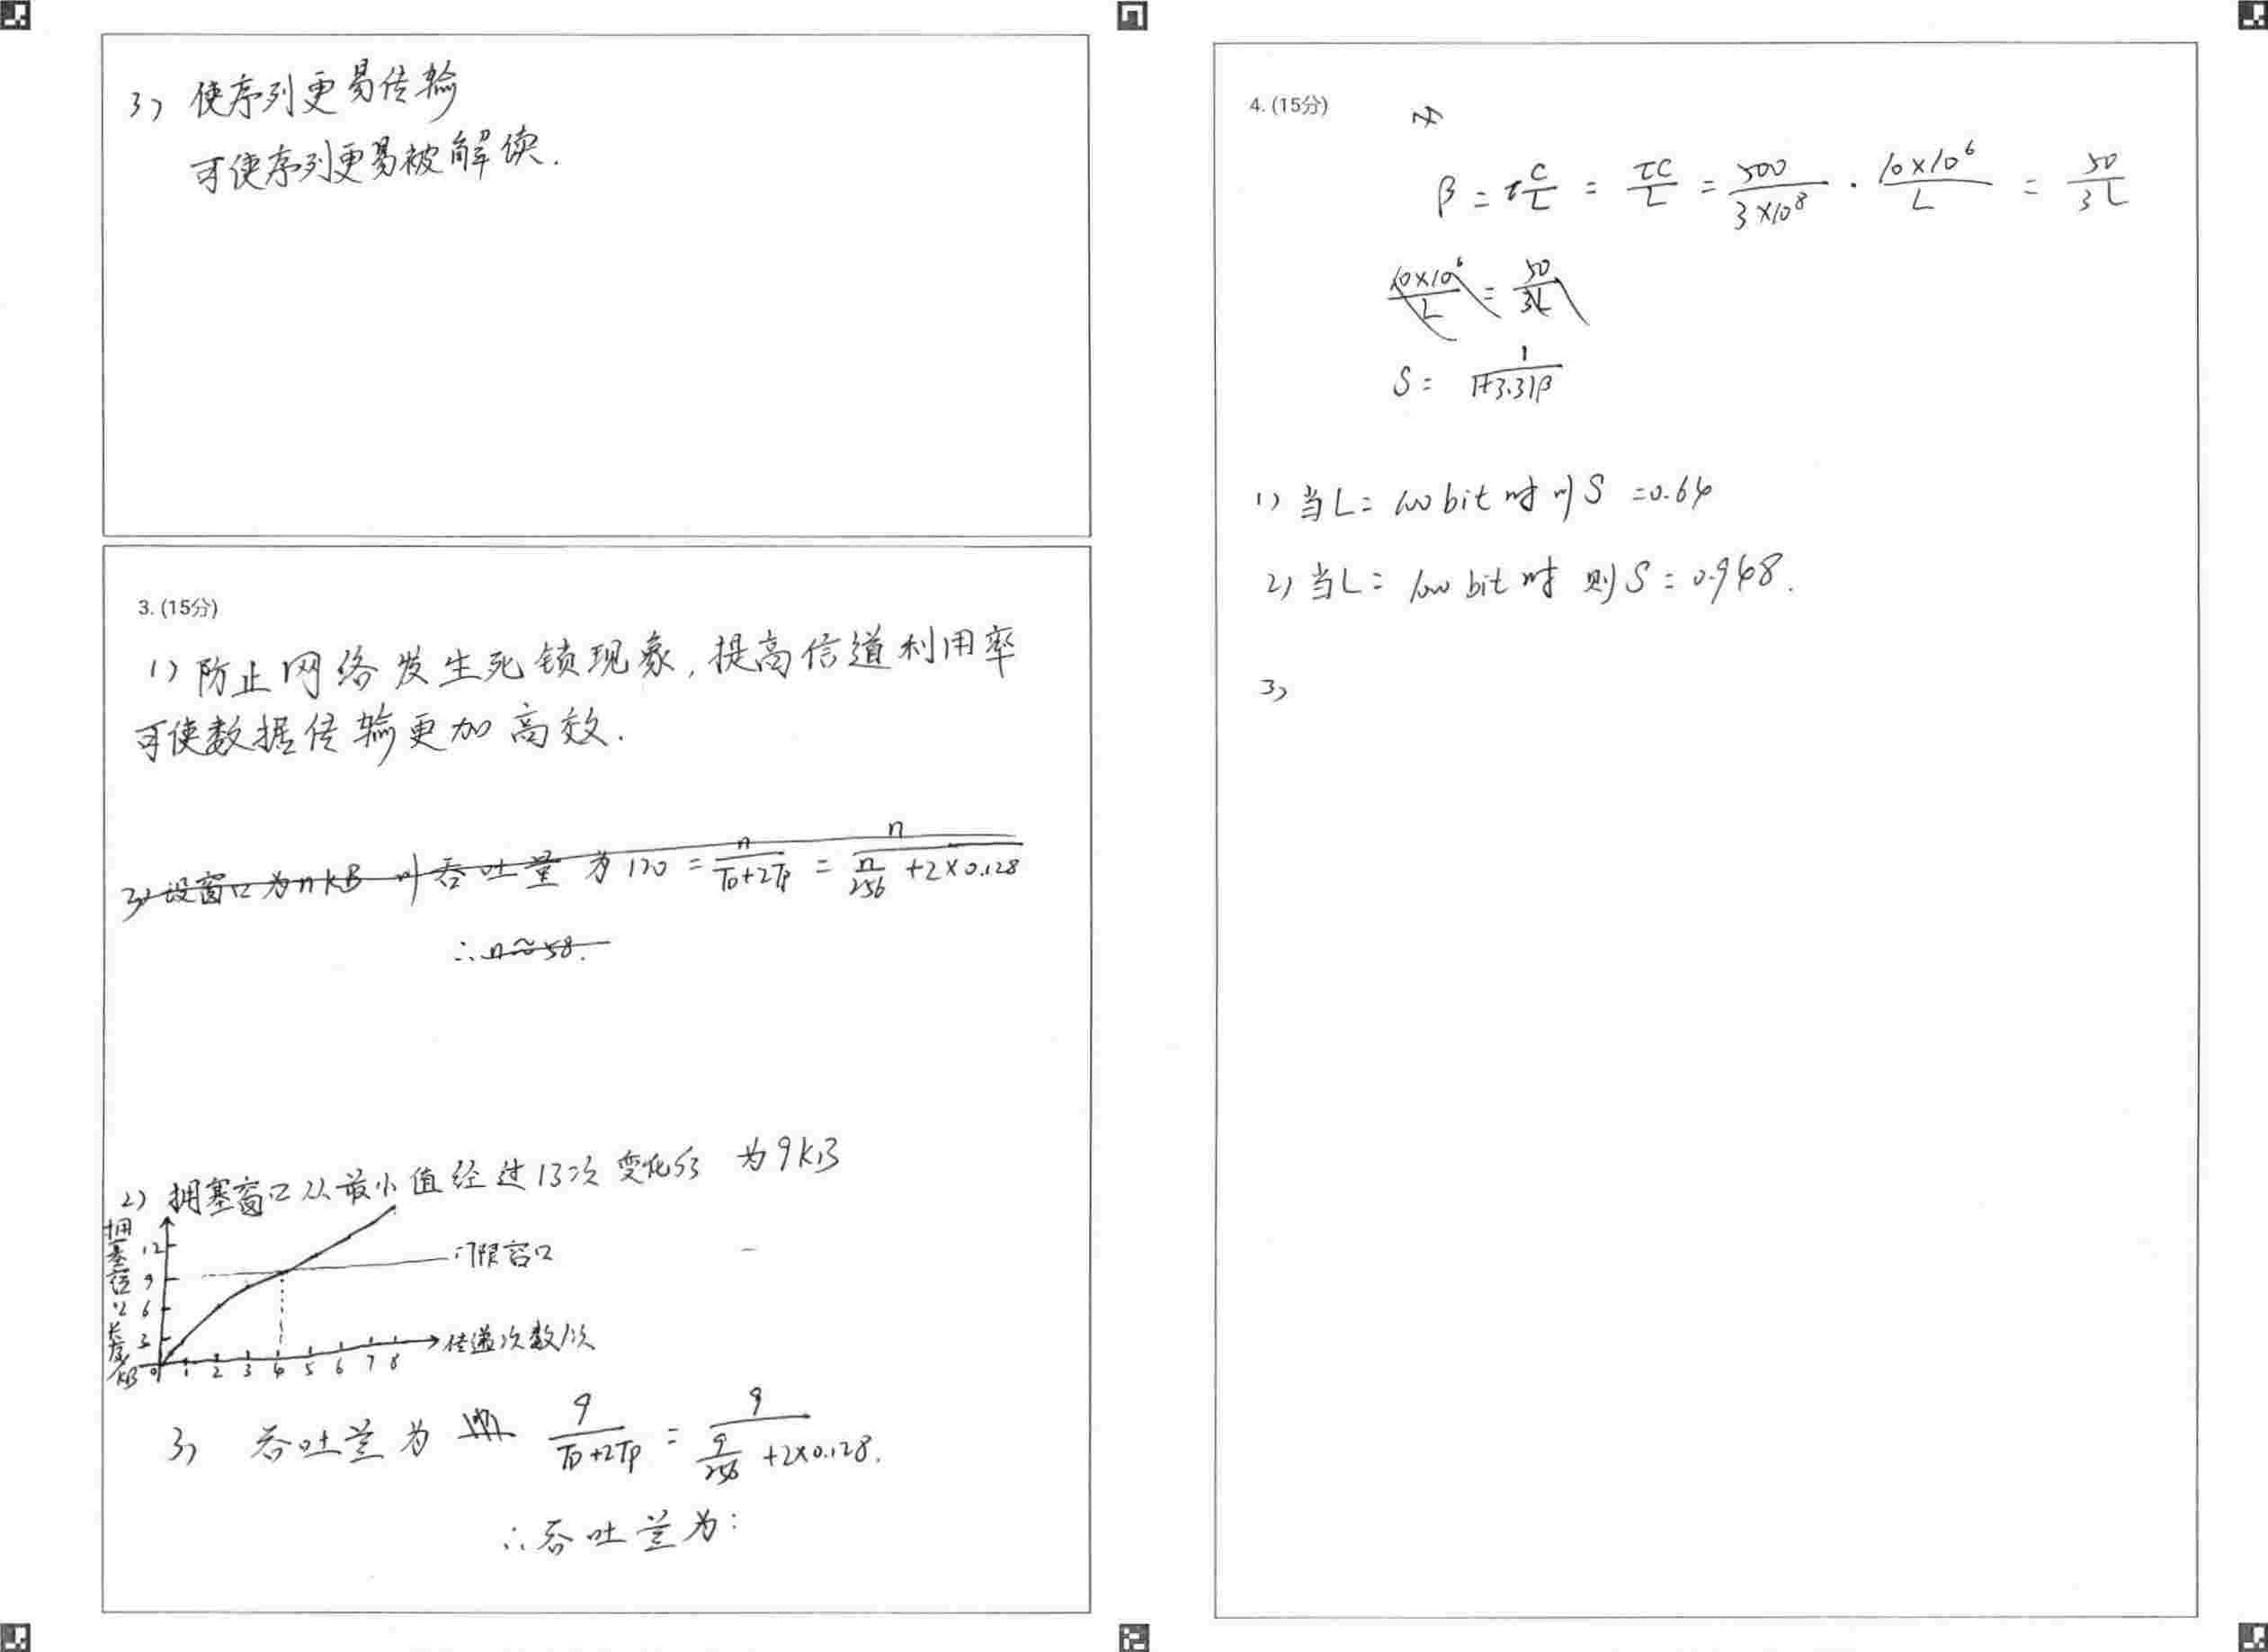 3) 使序列更易传输
可使序列更易被解读.
3. (15分)
1) 防止网络发生死锁现象, 提高信道利用率
可使数据传输更加高效.
3) 设窗口为nkB 则吞吐量为120 = n/(TD+2TP) = n/(n/256 + 2×0.128)
∴ n≈58.
2) 拥塞窗口从最小值经过13次变化后 为9kB
拥塞窗口长度/kB
12
9
6
3
0 1 2 3 4 5 6 7 8
门限窗口
传递次数/次
3) 吞吐量为 9/(TD+2TP) = 9/(9/256 + 2×0.128).
∴ 吞吐量为:
4. (15分)
β = τC/L = τC/L = 500/(3×10⁸) · 10×10⁶/L = 50/3L
10×10⁶/L = 50/3L
S = 1/(1+3.31β)
1) 当L = 100 bit 时 则 S = 0.64
2) 当L = 1000 bit 时 则 S = 0.948.
3)